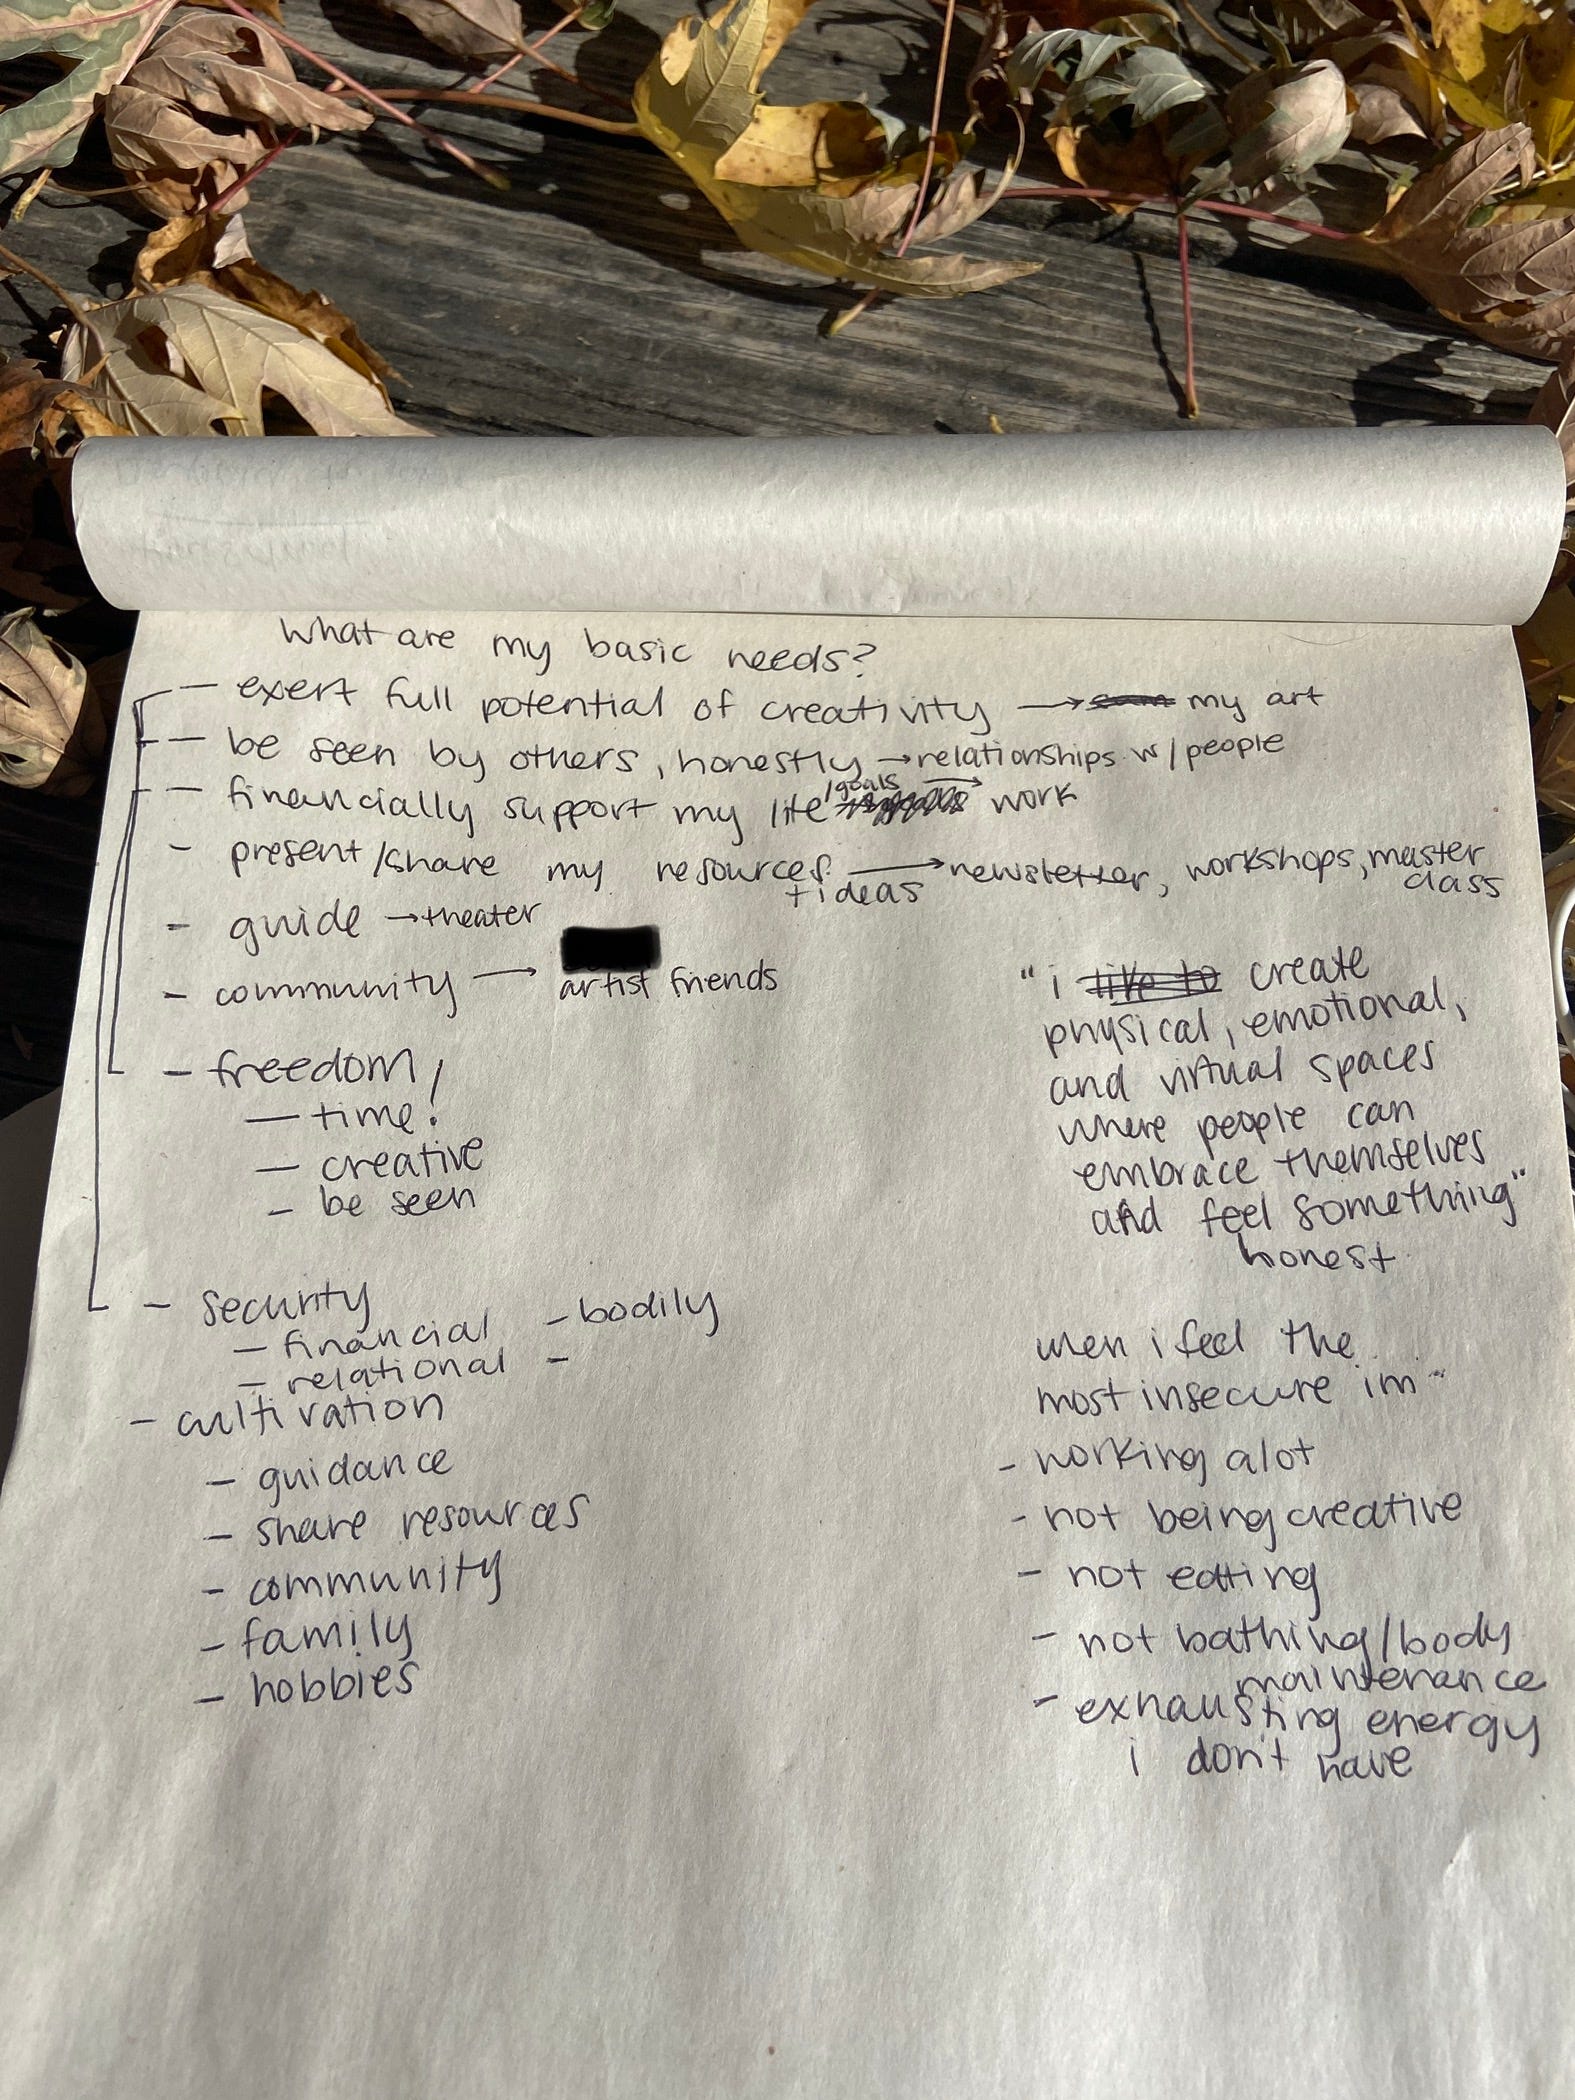 What are my basic needs?
— exert full potential of creativity → my art
— be seen by others, honestly → relationships w/people
— financially support my life /goals → work
- present/share my resources + ideas → newsletter, workshops, master class
- guide → theater
- community → artist friends
- freedom!
— time!
— creative
- be seen
- security
— financial - bodily
— relational -
- cultivation
- guidance
- share resources
- community
- family
- hobbies
"i like to create
physical, emotional,
and virtual spaces
where people can
embrace themselves
and feel something"
honest
when i feel the
most insecure im -
- working alot
- not being creative
- not eating
- not bathing/body
maintenance
- exhausting energy
i don't have